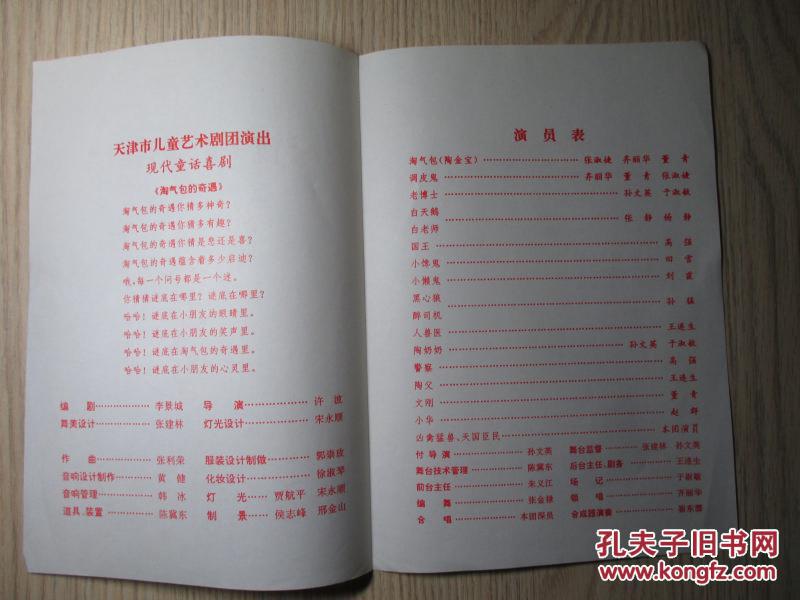 天津市儿童艺术剧团演出
现代童话喜剧
《淘气包的奇遇》
淘气包的奇遇你猜多神奇?
淘气包的奇遇你猜多有趣?
淘气包的奇遇你猜是悲还是喜?
淘气包的奇遇蕴含着多少启迪?
哦,每一个问号都是一个迷。
你猜猜谜底在哪里?谜底在哪里?
哈哈!谜底在小朋友的眼睛里。
哈哈!谜底在小朋友的笑声里。
哈哈!谜底在淘气包的奇遇里。
哈哈!谜底在小朋友的心灵里。
编 剧……………李景城 导 演………………许 波
舞美设计……………张建林 灯光设计……………宋永顺
作 曲……………张利荣 服装设计制做………郭崇玫
音响设计制作………黄 健 化妆设计……………徐淑琴
音响管理……………韩 冰 灯 光……贾航平 宋永顺
道具、装置…………陈冀东 制 景……侯志峰 邢金山
演 员 表
淘气包(陶金宝)……………张淑捷 乔丽华 董 青
调皮鬼……………乔丽华 董 青 张淑捷
老博士……………孙文英 于淑敏
白天鹅
白老师……………张 静 杨 静
国王……………高 强
小馋鬼……………田 雪
小懒鬼……………刘 霞
黑心狼
醉司机……………孙 猛
人兽医……………王连生
陶奶奶……………孙文英 于淑敏
警察……………高 强
陶父……………王连生
文刚……………董 青
小华……………赵 群
凶禽猛兽、天国臣民……………本团演员
付 导 演……………孙文英 舞台监督…………张建林 孙文英
舞台技术管理………陈冀东 后台主任、剧务……王连生
前台主任……………朱义江 场 记……………于淑敏
编 舞……………张金禄 领 唱……………齐丽华
合 唱……………本团演员 合成器演奏……………
孔夫子旧书网
www.kongfz.com